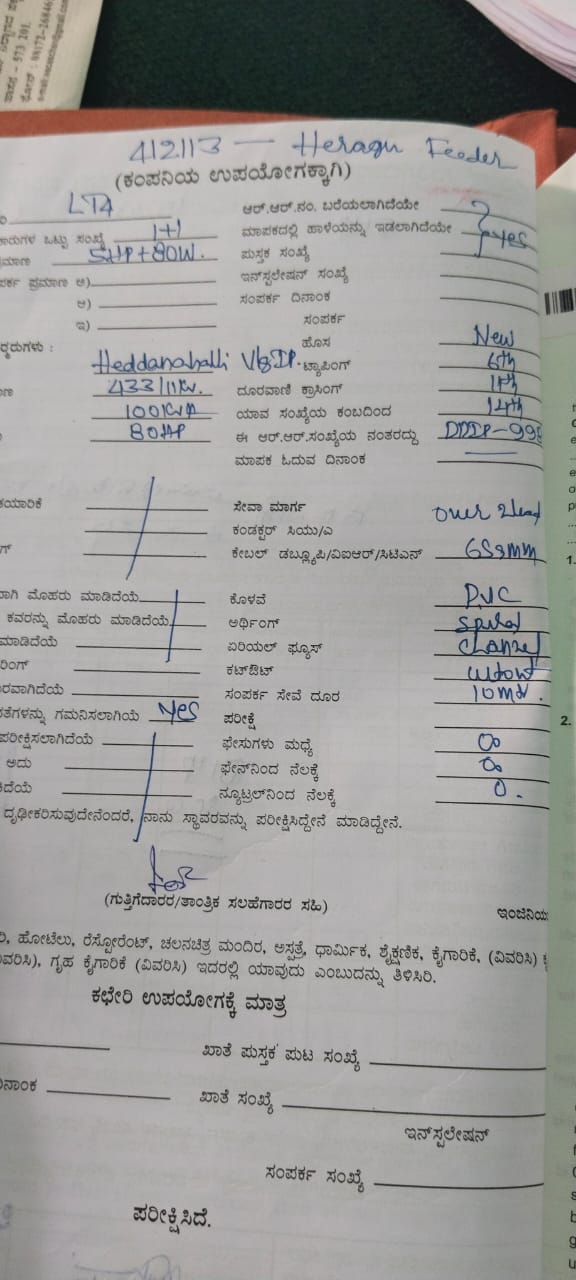 ಹಾಸನ – 573 201.
ಫೋನ್ : 08172-26846
412113 — Heragu Feeder
(ಕಂಪನಿಯ ಉಪಯೋಗಕ್ಕಾಗಿ)
LT4 ಆರ್.ಆರ್.ನಂ. ಬರೆಯಲಾಗಿದೆಯೇ
ಒಟ್ಟು ಸಂಖ್ಯೆ 1+1 ಮಾಪಕದಲ್ಲಿ ಹಾಳೆಯನ್ನು ಇಡಲಾಗಿದೆಯೇ yes
ಮಾಣ 5HP+80W. ಪುಸ್ತಕ ಸಂಖ್ಯೆ
ಪರ್ಕ ಪ್ರಮಾಣ ಅ) ಇನ್‌ಸ್ಪಲೇಷನ್ ಸಂಖ್ಯೆ
ಆ) ಸಂಪರ್ಕ ದಿನಾಂಕ
ಇ) ಸಂಪರ್ಕ
ಹೊಸ New
Heddanahalli ಟ್ಯಾಪಿಂಗ್ 6th
433/11KV. ದೂರವಾಣಿ ಕ್ರಾಸಿಂಗ್
100KVA ಯಾವ ಸಂಖ್ಯೆಯ ಕಂಬದಿಂದ 14th
80HP ಈ ಆರ್.ಆರ್.ಸಂಖ್ಯೆಯ ನಂತರದ್ದು
ಮಾಪಕ ಓದುವ ದಿನಾಂಕ
ಕಯಾರಿಕೆ ಸೇವಾ ಮಾರ್ಗ over Head
ಕಂಡಕ್ಟರ್ ಸಿಯು/ಎ
ಗ್ ಕೇಬಲ್ ಡಬ್ಲ್ಯೂಪಿ/ವಿಐಆರ್/ಸಿಟಿಎಸ್
ವಾಗಿ ಮೊಹರು ಮಾಡಿದೆಯೆ ಕೊಳವೆ PVC
ಕವರನ್ನು ಮೊಹರು ಮಾಡಿದೆಯೆ ಅರ್ಥಿಂಗ್
ಮಾಡಿದೆಯೆ ಏರಿಯಲ್ ಫ್ಯೂಸ್
ರಿಂಗ್ ಕಟ್‌ಔಟ್
ರವಾಗಿದೆಯೆ ಸಂಪರ್ಕ ಸೇವೆ ದೂರ
ತೆಗಳನ್ನು ಗಮನಿಸಲಾಗಿಯೆ Yes ಪರೀಕ್ಷೆ
ಪರೀಕ್ಷಿಸಲಾಗಿದೆಯೆ ಫೇಸುಗಳು ಮಧ್ಯೆ
ಅದು ಫೇಸ್‌ನಿಂದ ನೆಲಕ್ಕೆ
ದೆಯೆ ನ್ಯೂಟ್ರಲ್‌ನಿಂದ ನೆಲಕ್ಕೆ 0.
ದೃಢೀಕರಿಸುವುದೇನೆಂದರೆ, ನಾನು ಸ್ಥಾವರವನ್ನು ಪರೀಕ್ಷಿಸಿದ್ದೇನೆ ಮಾಡಿದ್ದೇನೆ.
(ಗುತ್ತಿಗೆದಾರರ/ತಾಂತ್ರಿಕ ಸಲಹೆಗಾರರ ಸಹಿ) ಇಂಜಿನಿಯ
ರಿ, ಹೋಟೆಲು, ರೆಸ್ಟೋರೆಂಟ್, ಚಲನಚಿತ್ರ ಮಂದಿರ, ಅಸ್ಪತ್ರೆ, ಧಾರ್ಮಿಕ, ಶೈಕ್ಷಣಿಕ, ಕೈಗಾರಿಕೆ, (ವಿವರಿಸಿ)
ವಿವರಿಸಿ), ಗೃಹ ಕೈಗಾರಿಕೆ (ವಿವರಿಸಿ) ಇದರಲ್ಲಿ ಯಾವುದು ಎಂಬುದನ್ನು ತಿಳಿಸಿರಿ.
ಕಛೇರಿ ಉಪಯೋಗಕ್ಕೆ ಮಾತ್ರ
ಖಾತೆ ಪುಸ್ತಕ ಪುಟ ಸಂಖ್ಯೆ
ನಾಂಕ ಖಾತೆ ಸಂಖ್ಯೆ
ಇನ್‌ಸ್ಪಲೇಷನ್
ಸಂಪರ್ಕ ಸಂಖ್ಯೆ
ಪರೀಕ್ಷಿಸಿದೆ.
1.
2.